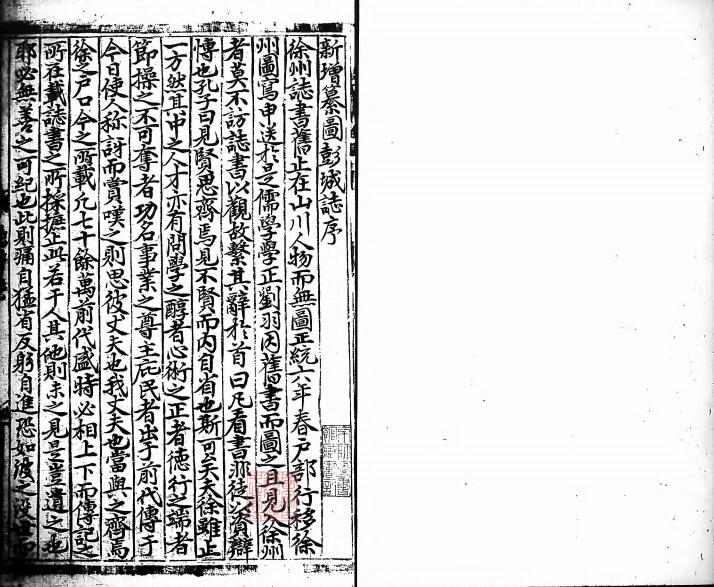 新增纂圖彭城誌序
徐州誌書舊止在山川人物而無圖正統六年春戶部行移徐
州圖寫申送於是儒學學正劉羽因舊書而圖之且見入徐州
者莫不訪誌書以觀故繫其辭於首曰凡看書非徒以資辯
博也孔子曰見賢思齊焉見不賢而内自省也斯可矣夫徐雖止
一方然其中之人才亦有問學之醇者心術之正者徳行之端者
節操之不可奪者功名事業之尊主庇民者出于前代傳于
今日使人称訝而賞嘆之則思彼丈夫也我丈夫也當與之齊焉
徐之戶口今之所載凢七十餘萬前代盛時必相上下而傳記之
所在載誌書之所採摭止此若干人其他則未之見是豈遺之也
耶必無善之可紀也此則痛自猛省反躬自進恐如彼之没世而